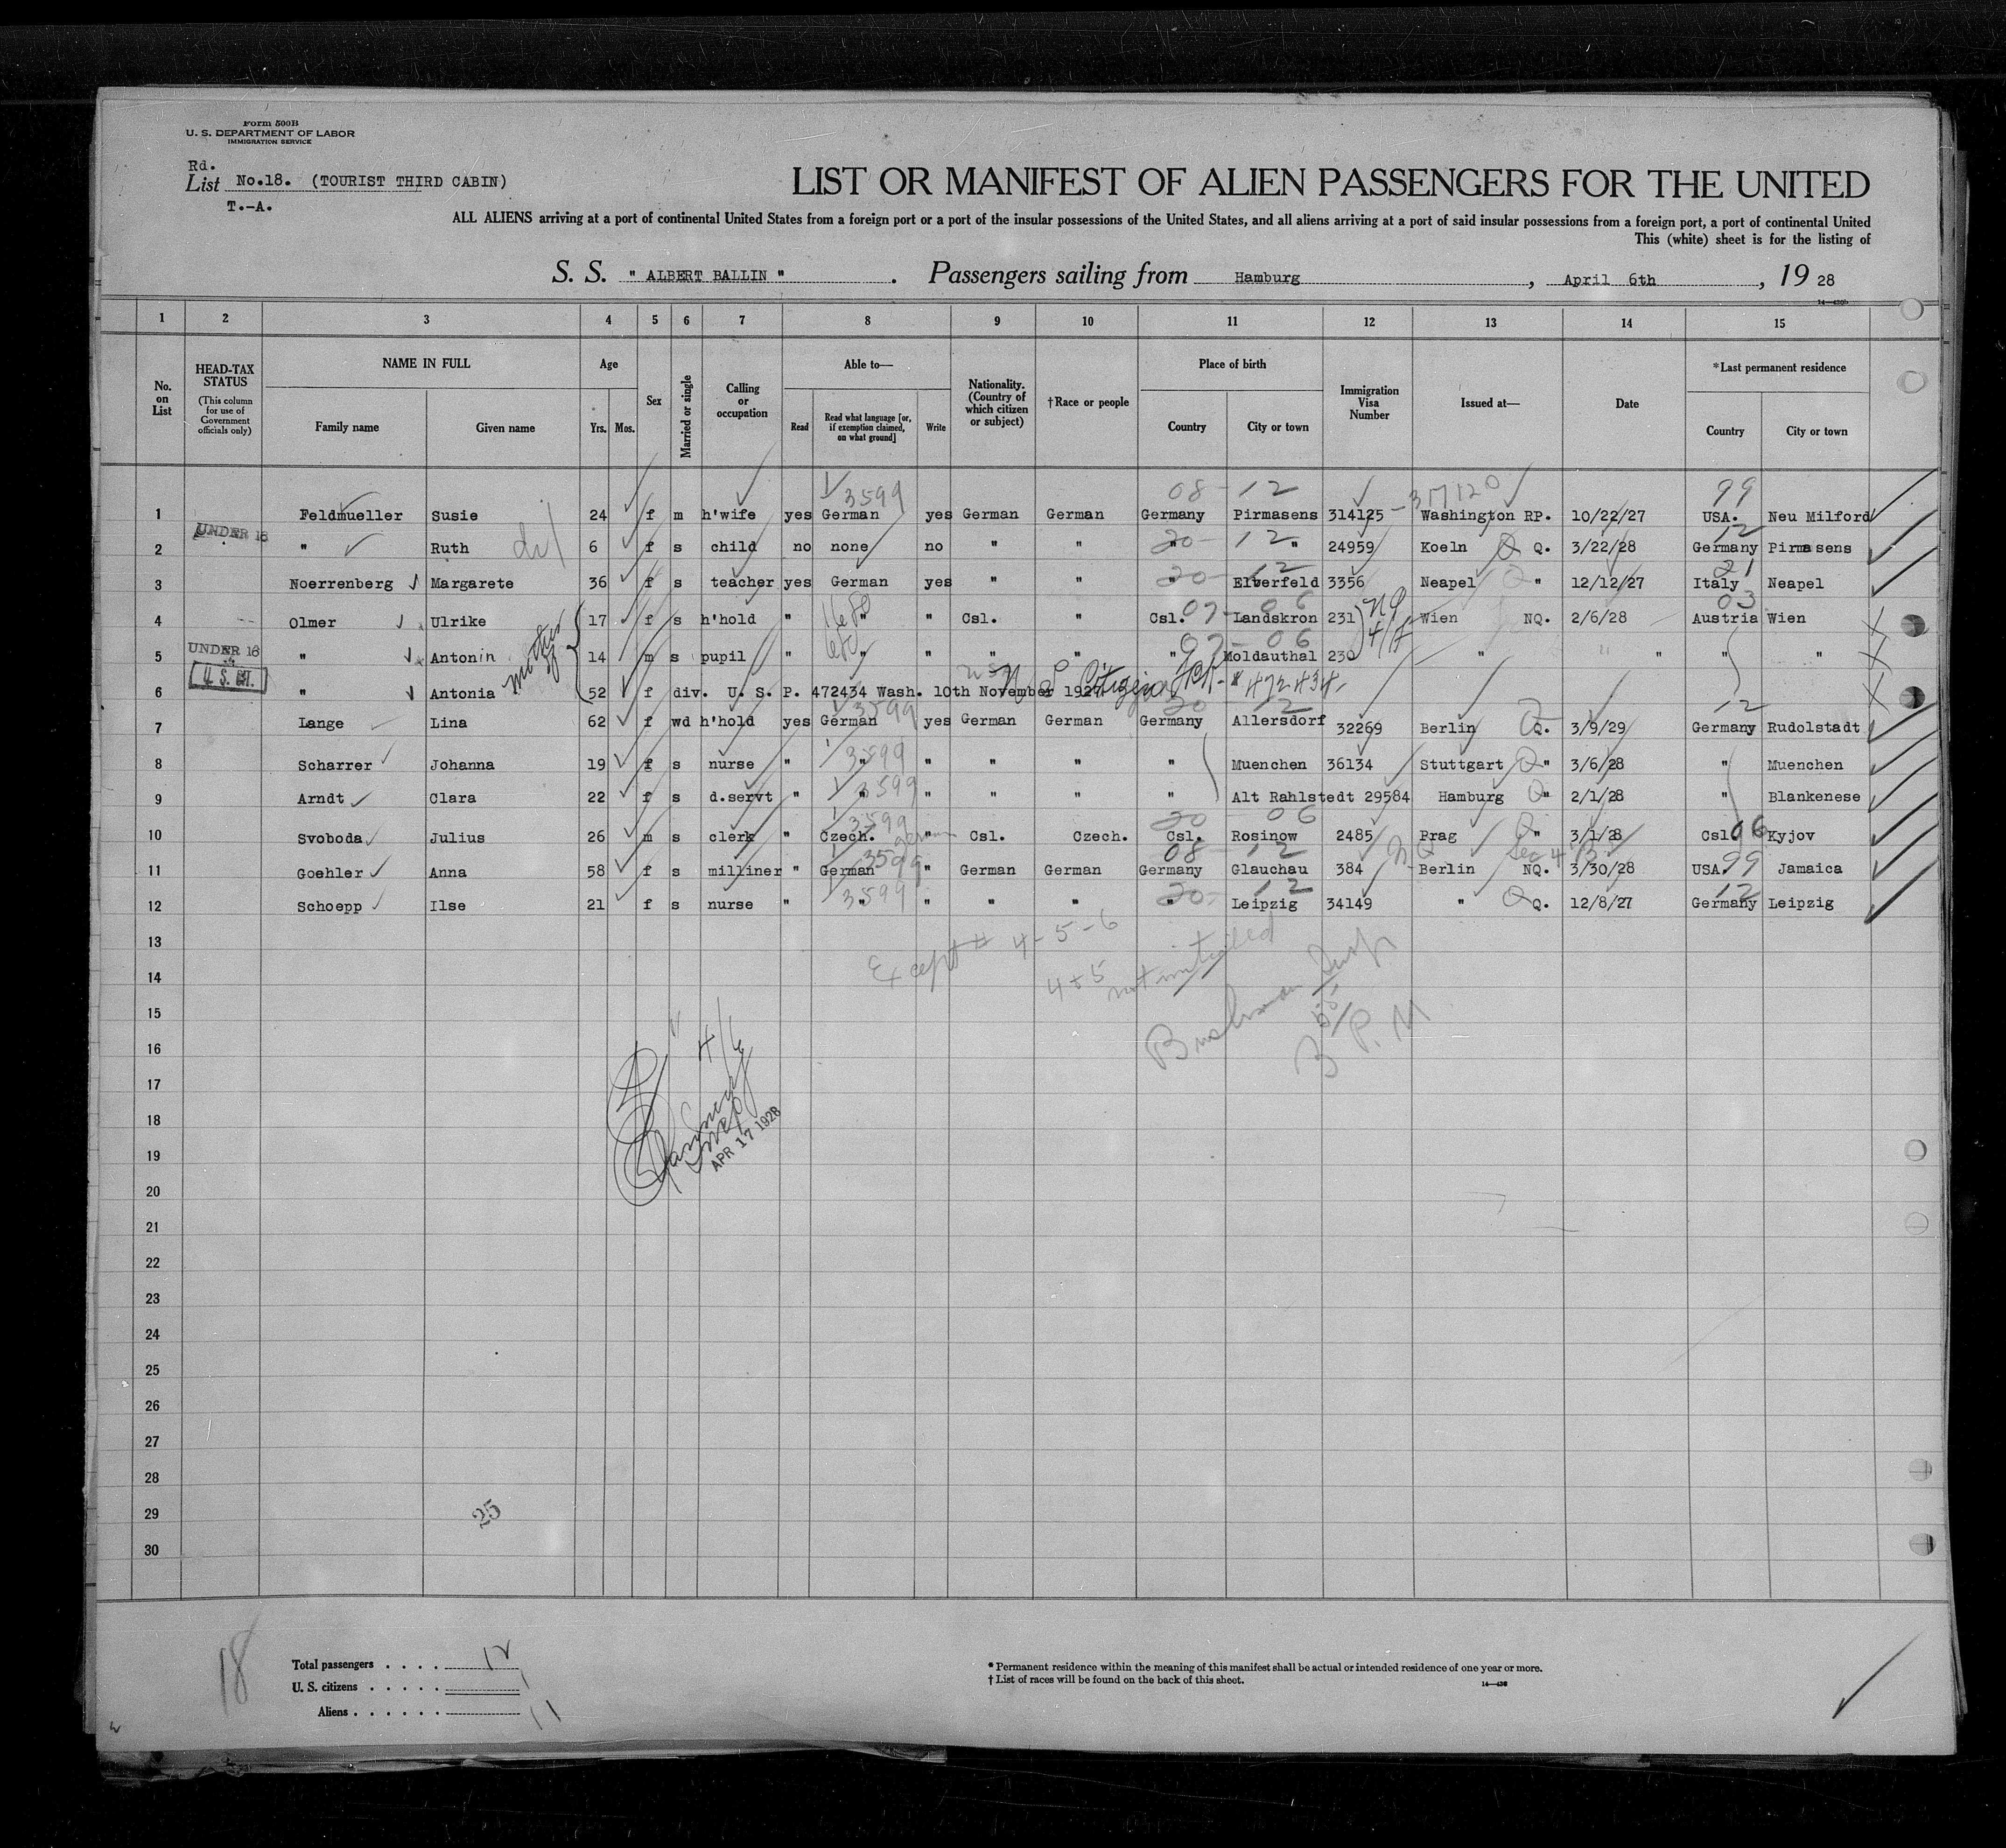 Form 500B
U. S. DEPARTMENT OF LABOR
IMMIGRATION SERVICE
Rd.
List No.18. (TOURIST THIRD CABIN)
T.-A.
LIST OR MANIFEST OF ALIEN PASSENGERS FOR THE UNITED
ALL ALIENS arriving at a port of continental United States from a foreign port or a port of the insular possessions of the United States, and all aliens arriving at a port of said insular possessions from a foreign port, a port of continental United
This (white) sheet is for the listing of
S. S. " ALBERT BALLIN ". Passengers sailing from Hamburg, April 6th, 19 28
1 2 3 4 5 6 7 8 9 10 11 12 13 14 15
No. on List
HEAD-TAX STATUS (This column for use of Government officials only)
NAME IN FULL
Family name Given name
Age
Yrs. Mos.
Sex
Married or single
Calling or occupation
Able to—
Read Read what language [or, if exemption claimed, on what ground] Write
Nationality. (Country of which citizen or subject)
†Race or people
Place of birth
Country City or town
Immigration Visa Number
Issued at—
Date
*Last permanent residence
Country City or town
3599 08-12 317120 99
1 Feldmueller Susie 24 f m h'wife yes German yes German German Germany Pirmasens 314125 Washington RP. 10/22/27 USA. Neu Milford
UNDER 16 20-12 12
2 " Ruth 6 f s child no none no " " " " 24959 Koeln Q. 3/22/28 Germany Pirmasens
20-12 21
3 Noerrenberg Margarete 36 f s teacher yes German yes " " " Elberfeld 3356 Neapel " 12/12/27 Italy Neapel
07-06 NQ 03
4 Olmer Ulrike 17 f s h'hold " " " Csl. " Csl. Landskron 231 Wien NQ. 2/6/28 Austria Wien
UNDER 16 mother of 07-06
5 " Antonin 14 m s pupil " " " " " " Moldauthal 230 " " " " "
U. S. CIT. U S Citizen #472434
6 " Antonia 52 f div. U. S. P. 472434 Wash. 10th November 1927.
3599 20-12 12
7 Lange Lina 62 f wd h'hold yes German yes German German Germany Allersdorf 32269 Berlin Q. 3/9/29 Germany Rudolstadt
3599
8 Scharrer Johanna 19 f s nurse " " " " " " Muenchen 36134 Stuttgart " 3/6/28 " Muenchen
3599
9 Arndt Clara 22 f s d.servt " " " " " " Alt Rahlstedt 29584 Hamburg " 2/1/28 " Blankenese
3599 20 06 06
10 Svoboda Julius 26 m s clerk " Czech. " Csl. Czech. Csl. Rosinow 2485 Prag " 3/1/28 Csl. Kyjov
3599 08-12 NQ Sec 4 99
11 Goehler Anna 58 f s milliner " German " German German Germany Glauchau 384 Berlin NQ. 3/30/28 USA. Jamaica
3599 20-12 12
12 Schoepp Ilse 21 f s nurse " " " " " " Leipzig 34149 " Q. 12/8/27 Germany Leipzig
13
Except # 4-5-6
14
4+5 not initialed
15
16
17
18
APR 17 1928
19
20
21
22
23
24
25
26
27
28
29
25
30
18
Total passengers . . . . 12
U. S. citizens . . . . . 1
Aliens . . . . . . 11
* Permanent residence within the meaning of this manifest shall be actual or intended residence of one year or more.
† List of races will be found on the back of this sheet.